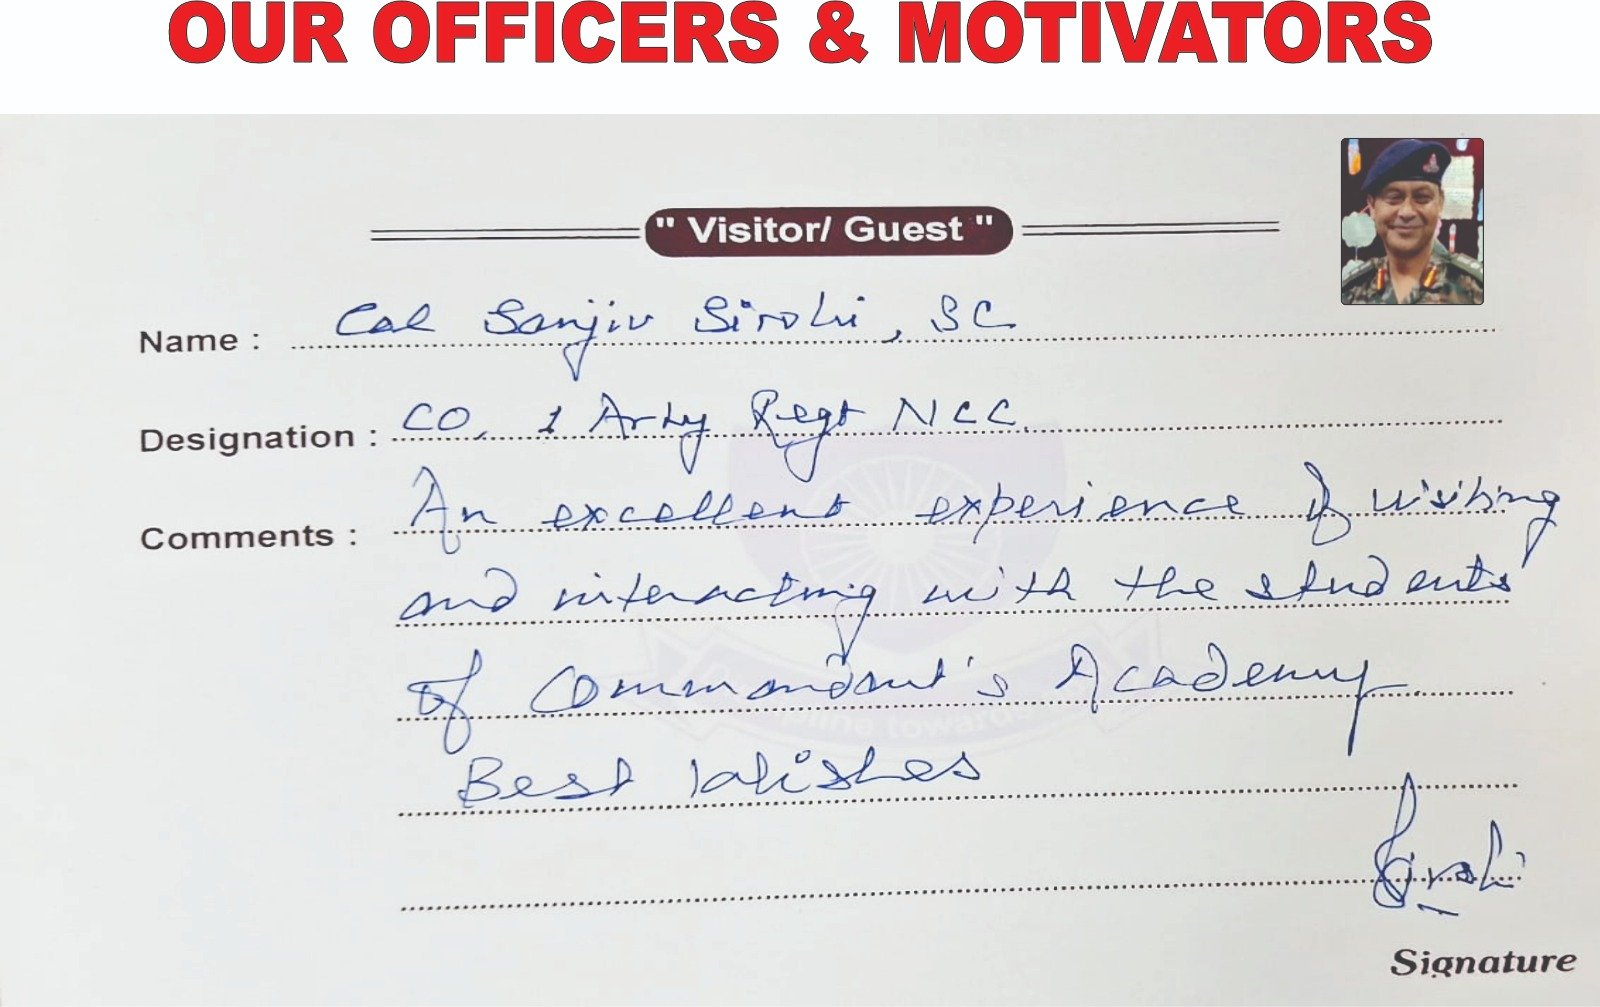 OUR OFFICERS & MOTIVATORS
" Visitor/ Guest "
Name : Col Sanjiv Sirohi, SC
Designation : CO, 1 Arty Regt NCC.
Comments : An excellent experience of visiting
and interacting with the students
of Commandant's Academy
Best Wishes
Sirohi
Signature